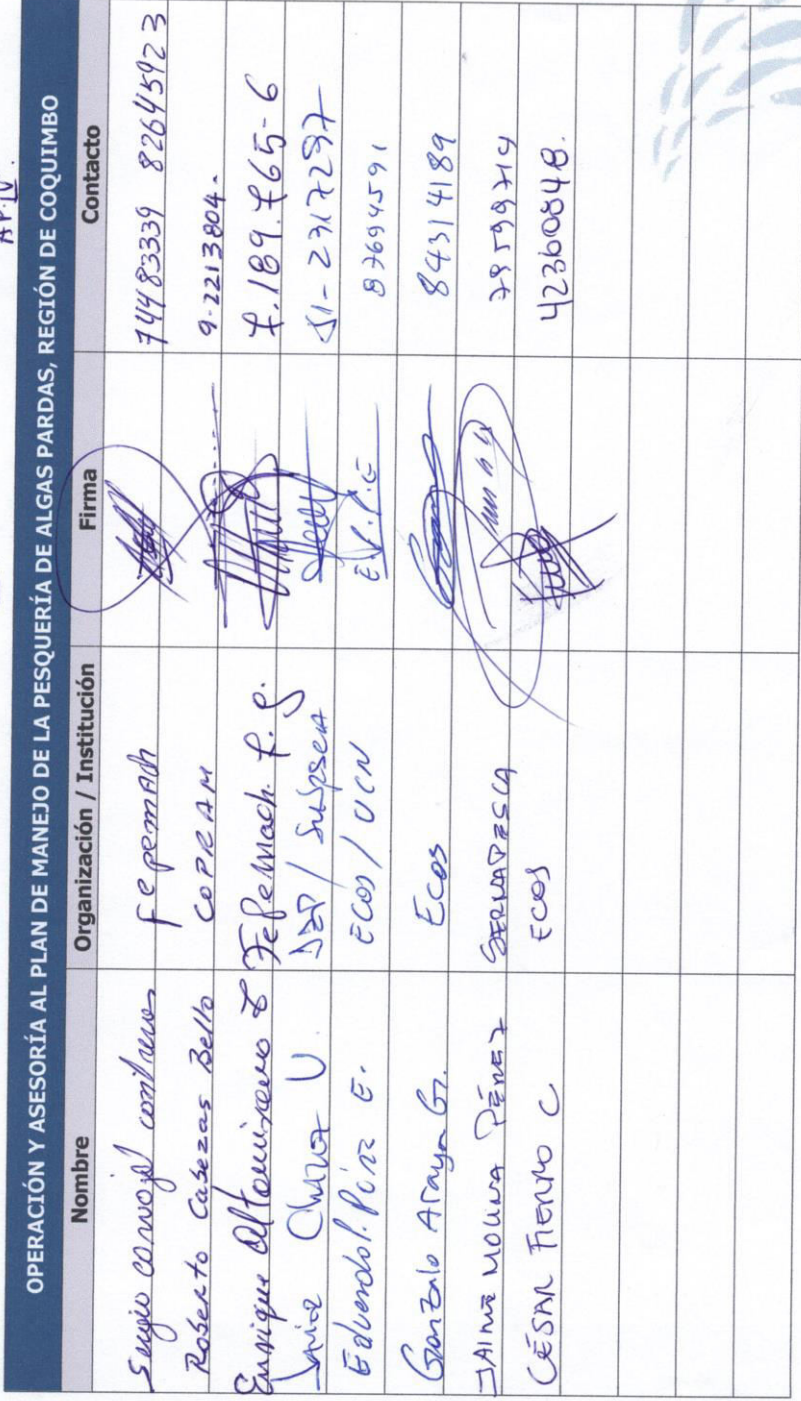 AP.IV.
OPERACIÓN Y ASESORÍA AL PLAN DE MANEJO DE LA PESQUERÍA DE ALGAS PARDAS, REGIÓN DE COQUIMBO
Nombre Organización / Institución Firma Contacto
Sergio contreras Fepemach 74483339 82645923
Roberto Cabezas Bello COPRAM 9-2213804-
Enrique Altamirano C Fepemach. F. G. 7.189.765-6
Chavez V / Subpesca 51-2317297
Eduardo P. Pérez E. ECOS / UCN E.P.P.E 87694591
Gonzalo Araya G. Ecos 84314189
JAIME MOLINA PÉREZ SERNAPESCA 78599714
CÉSAR FIERRO C ECOS 42360848.